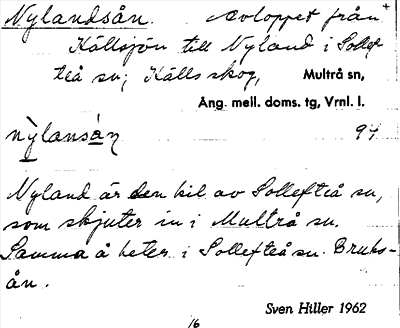 Nylandsån. Avloppet från
Källsjön till Nyland i Sollef-
teå sn; Källs skog, Multrå sn,
Ång. mell. doms. tg, Vrnl. l.
nỳlansán 94
Nyland är den kil av Sollefteå sn,
som skjuter in i Multrå sn.
Samma å heter i Sollefteå sn. Bruks-
ån.
Sven Hiller 1962
16